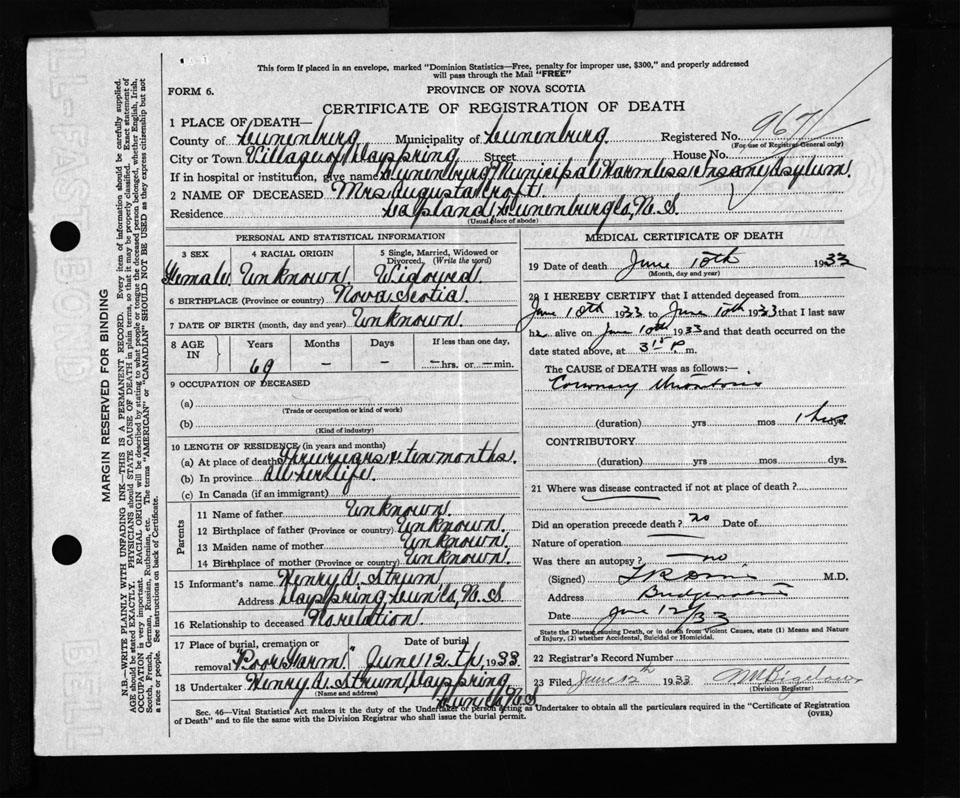 This form if placed in an envelope, marked "Dominion Statistics—Free, penalty for improper use, $300," and properly addressed
will pass through the Mail "FREE"
FORM 6.
PROVINCE OF NOVA SCOTIA
CERTIFICATE OF REGISTRATION OF DEATH
1 PLACE OF DEATH—
County of Lunenburg Municipality of Lunenburg. Registered No. 9671
(For use of Registrar General only)
City or Town Village of Dayspring Street House No.
If in hospital or institution, give name Lunenburg Municipal Harmless Insane Asylum.
2 NAME OF DECEASED Mrs Augusta Croft.
Residence Lapland, Lunenburg Co, N. S.
(Usual place of abode)
PERSONAL AND STATISTICAL INFORMATION
3 SEX
Female
4 RACIAL ORIGIN
Unknown
5 Single, Married, Widowed or
Divorced, (Write the word)
Widowed.
6 BIRTHPLACE (Province or country) Nova Scotia.
7 DATE OF BIRTH (month, day and year) Unknown.
8 AGE IN
Years Months Days If less than one day,
69 – – –hrs. or –min.
9 OCCUPATION OF DECEASED
(a)
(Trade or occupation or kind of work)
(b)
(Kind of industry)
10 LENGTH OF RESIDENCE (in years and months)
(a) At place of death years & ten months.
(b) In province all her life.
(c) In Canada (if an immigrant)
Parents
11 Name of father Unknown.
12 Birthplace of father (Province or country) Unknown.
13 Maiden name of mother Unknown.
14 Birthplace of mother (Province or country) Unknown.
15 Informant's name Henry A. Strum
Address Dayspring Lun. Co, N. S.
16 Relationship to deceased No relation.
17 Place of burial, cremation or
removal "Poor Farm."
Date of burial
June 12th, 1933.
18 Undertaker Henry A. Strum, Dayspring
(Name and address)
Lun. Co, N. S.
MEDICAL CERTIFICATE OF DEATH
19 Date of death June 10th 1933
(Month, day and year)
20 I HEREBY CERTIFY that I attended deceased from
June 10th 1933 to June 10th 1933 that I last saw
her alive on June 10th 1933 and that death occurred on
date stated above, at 3 P. m.
The CAUSE of DEATH was as follows:—
Coronary Thrombosis
(duration) yrs mos 1 hrs
CONTRIBUTORY
(duration) yrs mos dys.
21 Where was disease contracted if not at place of death?
Did an operation precede death? no Date of
Nature of operation
Was there an autopsy? no
(Signed) M.D.
Address Bridgewater
Date June 12/33
State the Disease causing Death, or in death from Violent Causes, state (1) Means and Nature
of Injury, (2) whether Accidental, Suicidal or Homicidal
22 Registrar's Record Number
23 Filed June 12th 1933 Bigelow
(Division Registrar)
Sec. 46—Vital Statistics Act makes it the duty of the Undertaker or person acting as Undertaker to obtain all the particulars required in the "Certificate of Registration
of Death" and to file the same with the Division Registrar who shall issue the burial permit.
(OVER)
MARGIN RESERVED FOR BINDING
N.B.—WRITE PLAINLY WITH UNFADING INK—THIS IS A PERMANENT RECORD. Every item of information should be carefully supplied.
AGE should be stated EXACTLY. PHYSICIANS should STATE CAUSE OF DEATH in plain terms, so that it may be properly classified. Exact statement of
OCCUPATION is very important. RACIAL ORIGIN will be described by stating to what people or tongue the deceased person belonged, whether English, Irish,
Scotch, French, German, Russian, Ruthenian, etc. The terms "AMERICAN" or "CANADIAN" SHOULD NOT BE USED as they express citizenship but not
a race or people. See instructions on back of Certificate.